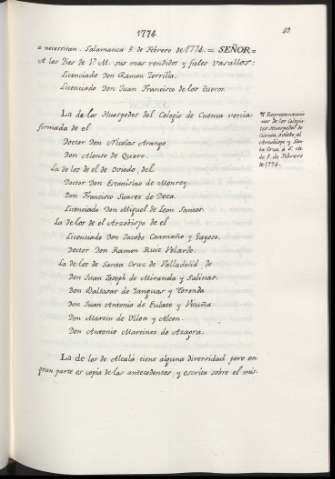 1774
a necesitan. Salamanca 5. de Febrero de 1774. = SEÑOR =
A los Pies de V. M. sus mas rendidos y fieles vasallos:
Licenciado Don Ramon Zorrilla.
Licenciado Don Juan Francisco de los
La de los Huespedes del Colegio de Cuenca venia
firmada de el
Doctor Don Nicolas Arango
Don Alonso de Quero.
La de los de el de Oviedo, del
Doctor Don Estanislao de Monroy
Don Francisco Suarez de Deza.
Licenciado Don Miguel de Leon Santos.
La de los de el Arzobispo de el
Licenciado Don Jacobo Caamaño y Gayoso.
Doctor Don Ramon Ruiz Velarde.
La de los de Santa Cruz de Valladolid de
Don Juan Joseph de Miranda y Salinas.
Don Baltasar de Yanguas y
Don Juan Antonio de Eulate y Vicuña
Don Martin de Ulloa y
Don Antonio Martinez de Azagra.
La de los de Alcalá tiene alguna diversidad pero en
gran parte es copia de las antecedentes, y escrita sobre el mis-
Representacio-
nes de los Colegia-
les Huespedes de
Cuenca, Oviedo, el
Arzobispo y San-
ta Cruz, á S. M.
de 5. de Febrero
de 1774.